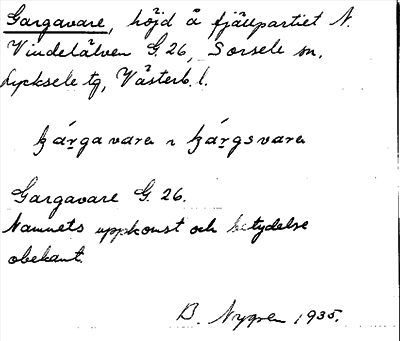 Gargavare, höjd å fjällpartiet N.
Vindelälven G. 26, Sorsele sn,
Lycksele tg, Västerb. l.
gárgavare ~ gárgsvare
Gargavare G. 26.
Namnets uppkomst och betydelse
obekant.
B. Nygren 1935.